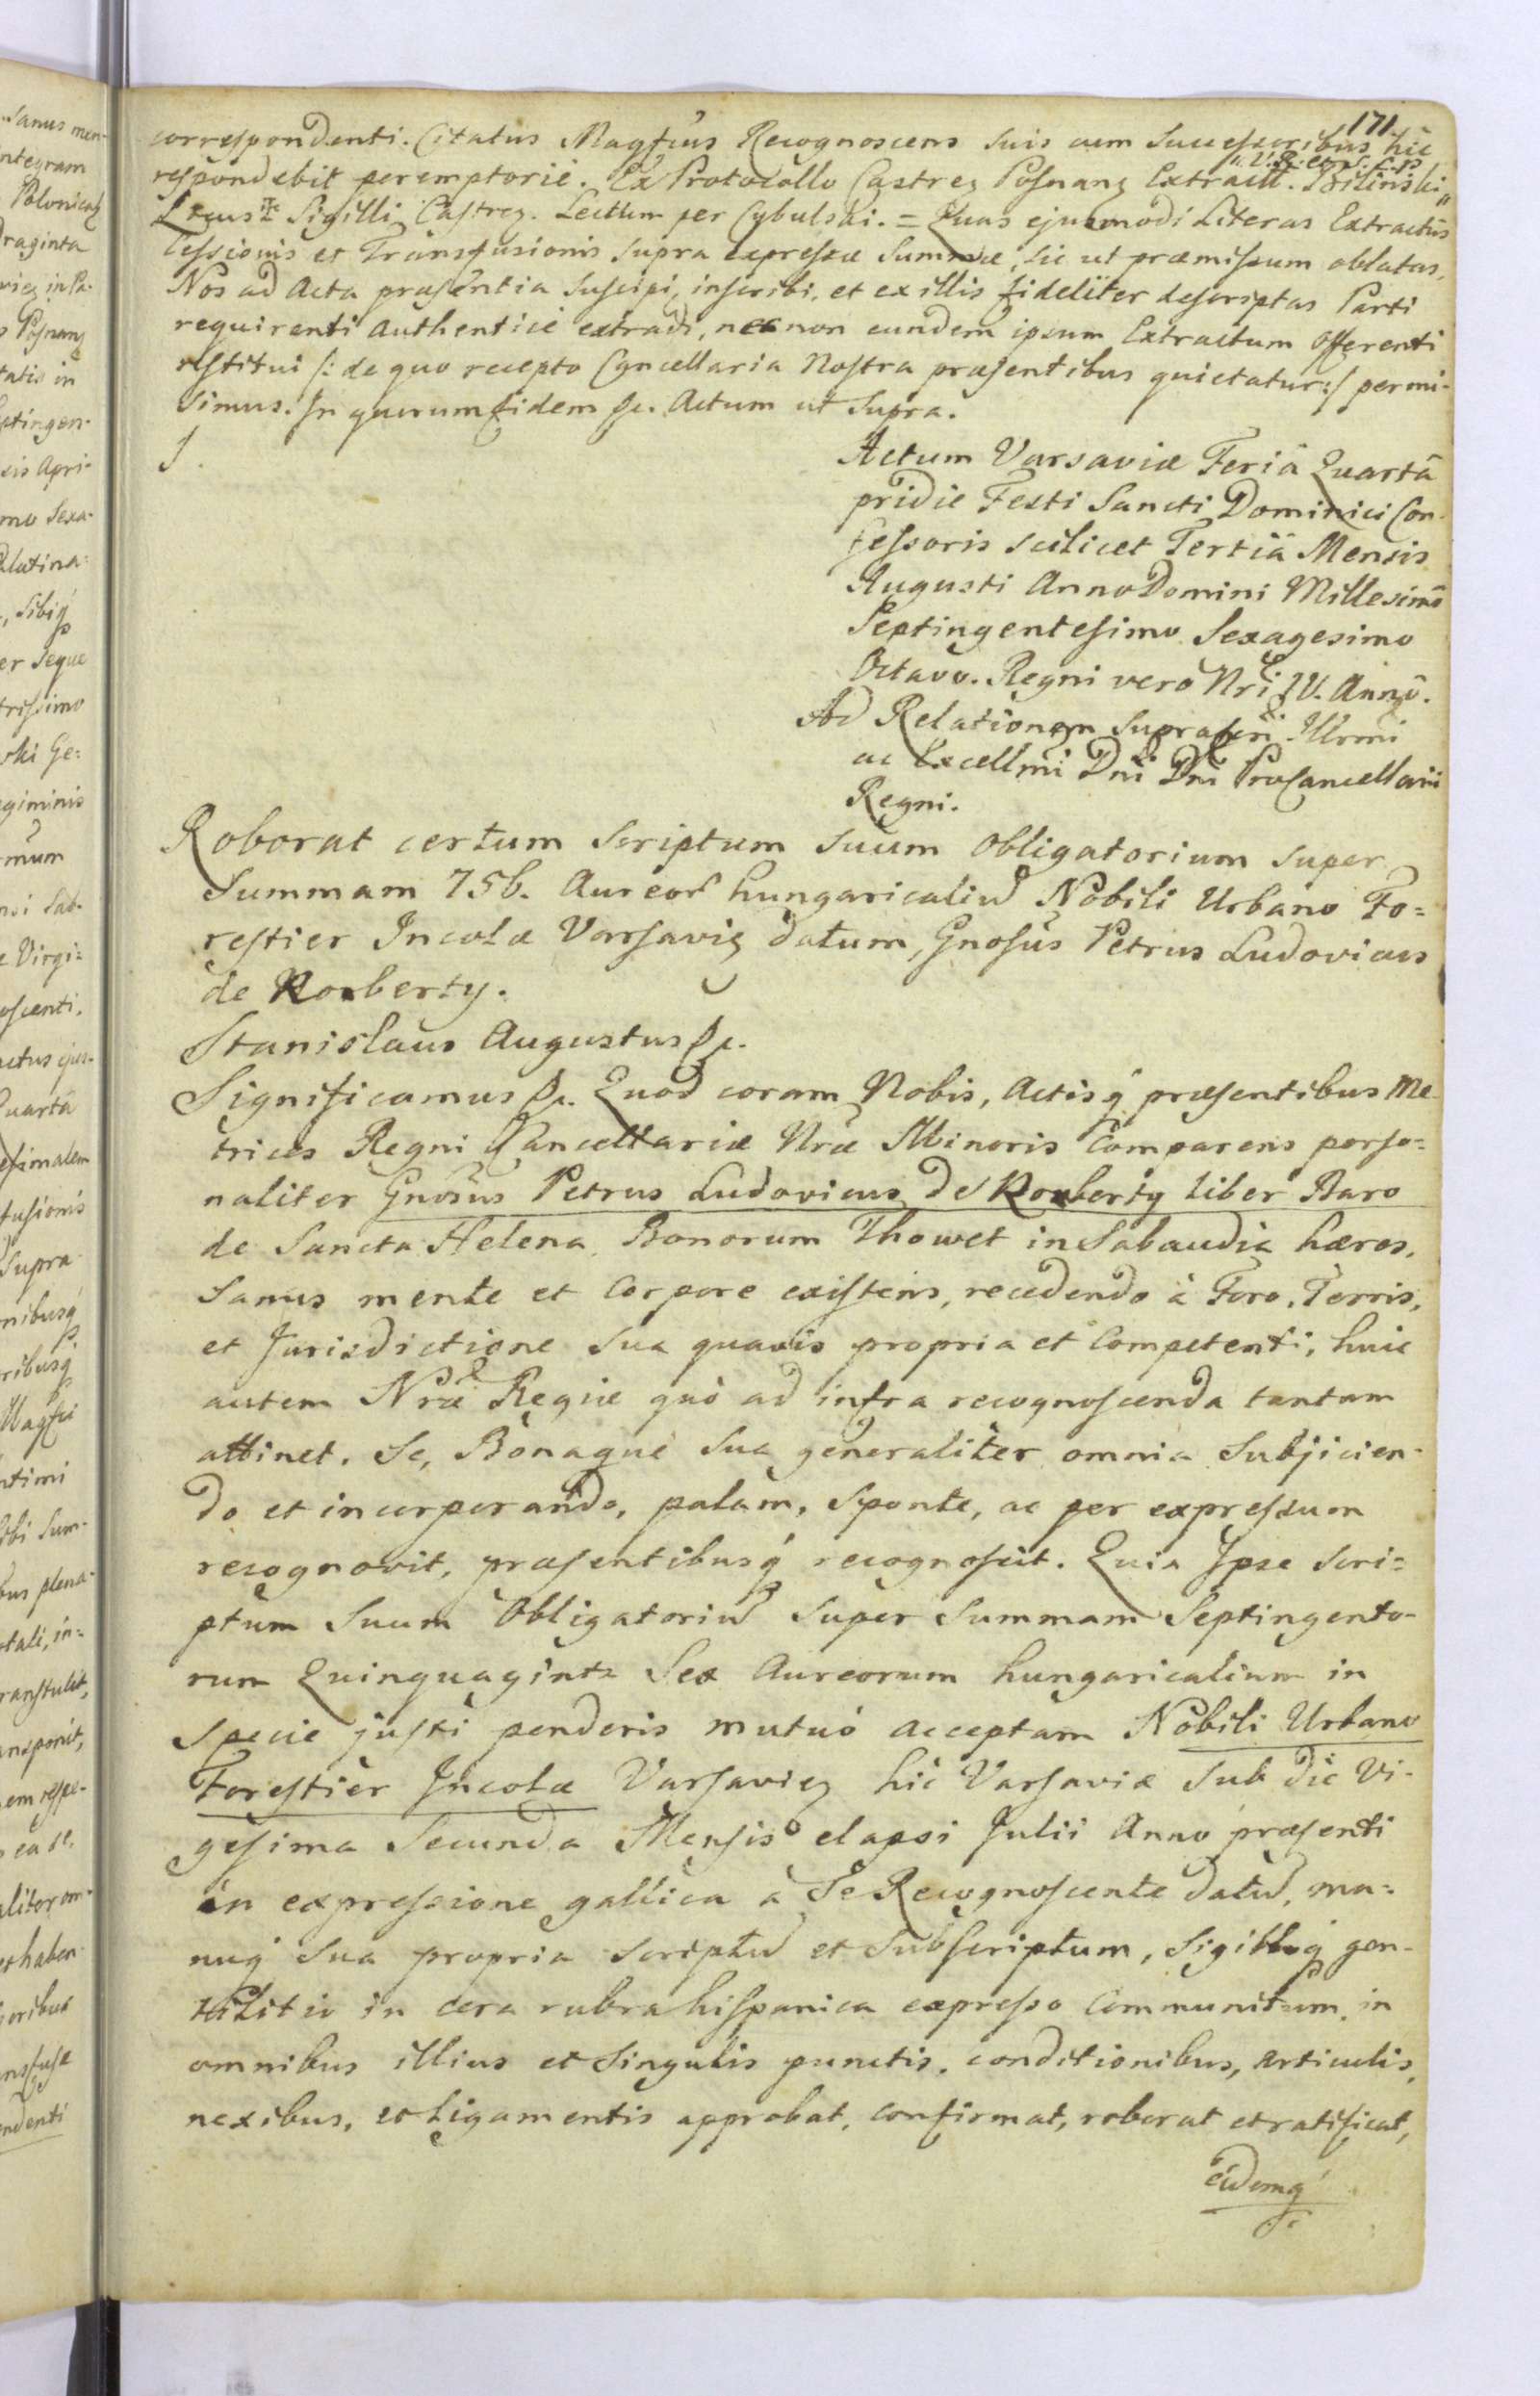 171
correspondenti. Citatus Magfcus Recognoscens suis cum Successoribus hic
respondebit peremptorie. Ex Protocollo Castren Posnanz Extract. Bilinski
Locus Sigilli Castren. Lectum per Cybulski. = Quas ejusmodi Literas Extractus
Cessionis et Transfusionis supra expressæ Summæ, sic ut præmissum oblatas,
Nos ad Acta præsentia suscipi, inscribi, et ex illis fideliter descriptas Parti
requirenti authentice extradi, nec non eundem ipsum Extractum Offerenti
restitui /: de quo recepto Cancellaria Nostra præsentibus quietatur :/ permi-
simus. In quorum fidem &c. Actum ut supra.
Actum Varsaviæ Feriâ Quartâ
pridie Festi Sancti Dominici Con-
fessoris scilicet Tertiâ Mensis
Augusti Anno Domini Millesimo
Septingentesimo Sexagesimo
Octavo. Regni vero Nri IV. Anno.
Ad Relationem suprascri Illrmi
ac Excellmi Dni Dni ProCancellarii
Regni.
Roborat certum Scriptum suum Obligatorium super
Summam 756. Aureor hungaricaliu Nobili Urbano Fo=
restier Incolæ Varsavien datum, Gnosus Petrus Ludovicus
de Norberty.
Stanislaus Augustus &c.
Significamus &c. Quod coram Nobis, Actisq præsentibus Me-
trices Regni Cancellariæ Nræ Minoris Comparens perso=
naliter Gnosus Petrus Ludovicus de Norberty liber Baro
de Sancta Helena Bonorum Thowet in Sabaudia hæres,
Sanus mente et Corpore existens, recedendo à Foro, Terris,
et Jurisdictione sua quavis propria et Competenti, huic
autem Nræ Regiæ quò ad infra recognoscenda tantum
attinet. Se, Bonaque sua generaliter omnia Subjicien-
do et incorporando, palam, sponte, ac per expressum
recognovit, præsentibusq recognoscit. Quia Ipse Scri=
ptum Suum Obligatoriu super Summam Septingento-
rum Quinquaginta Sex Aureorum hungaricalium in
specie justi ponderis mutuò acceptam Nobili Urbano
Forestier Incolæ Varsavien hic Varsaviæ Sub die Vi-
gesima Secunda Mensis elapsi Julii Anno præsenti
in expressione gallica à Se Recognoscente datu, ma=
nuq sua propria scriptu et subscriptum, Sigilloq gen-
tilitio in cera rubra hispanica expresso Communitum, in
omnibus illius et Singulis punctis, conditionibus, articulis,
nexibus, et ligamentis approbat, confirmat, roborat et ratificat,
eidemq